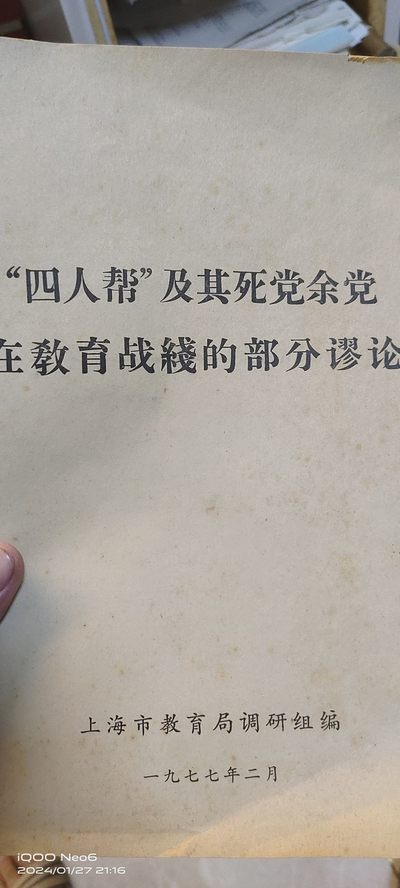 “四人帮”及其死党余党
在教育战綫的部分谬论
上海市教育局调研组编
一九七七年二月
iQOO Neo6
2024/01/27 21:16